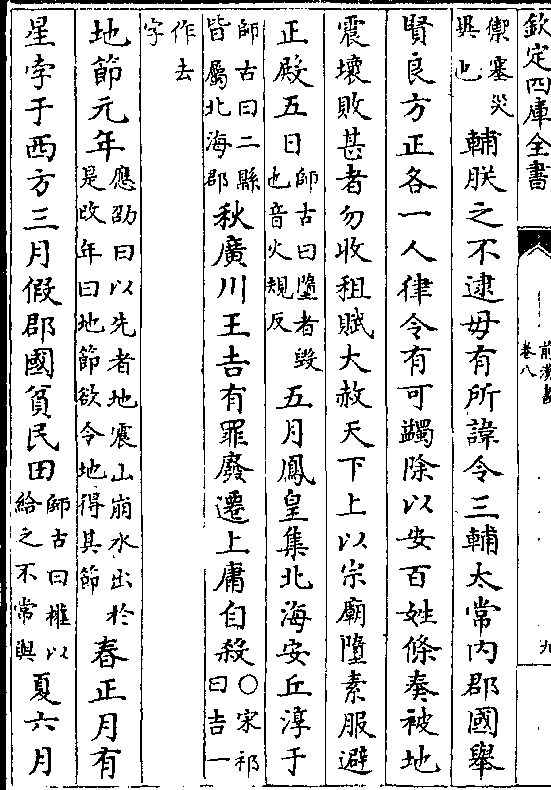 欽定四庫全書
前漢書
卷八
九
禦塞災異也輔朕之不逮毋有所諱令三輔太常内郡國舉
賢良方正各一人律令有可蠲除以安百姓條奏被地
震壞敗甚者勿收租賦大赦天下上以宗廟墮素服避
正殿五日師古曰墮者毀也音火規反五月鳳皇集北海安丘淳于
師古曰二縣皆屬北海郡秋廣川王吉有罪廢遷上庸自殺○宋祁曰吉一
作去字
地節元年應劭曰以先者地震山崩水出於是改年曰地節欲令地得其節春正月有
星孛于西方三月假郡國貧民田師古曰權以給之不常與夏六月